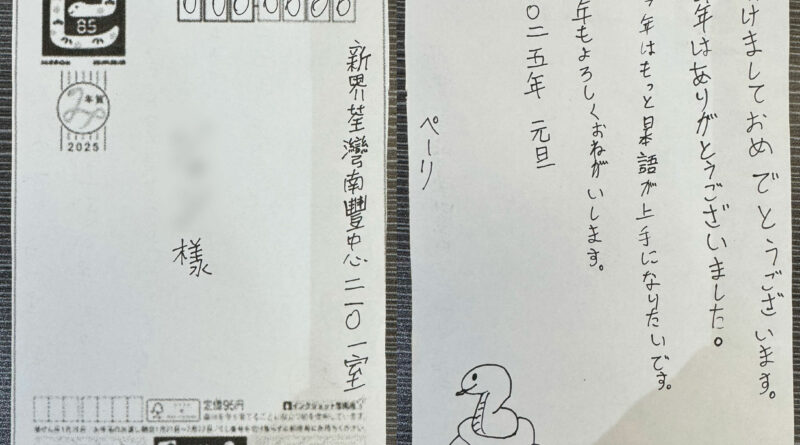 85
年賀
2025
000 0000
新界荃灣南豐中心二一〇一室
様
定価95円
けましておめでとうございます。
年はありがとうございました。
今年はもっと日本語が上手になりたいです。
年もよろしくおねがいします。
〇二五年 元旦
ペーリ